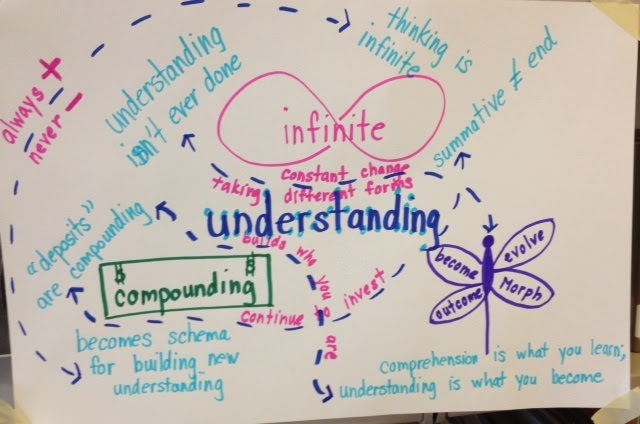 always +
never -
understanding
isn't ever done
thinking is
infinite
summative ≠ end
infinite
constant change
taking different forms
understanding
"deposits"
are compounding
builds who you are
$ $
compounding
continue to invest
become
evolve
outcome
Morph
becomes schema
for building new
understanding
comprehension is what you learn;
understanding is what you become